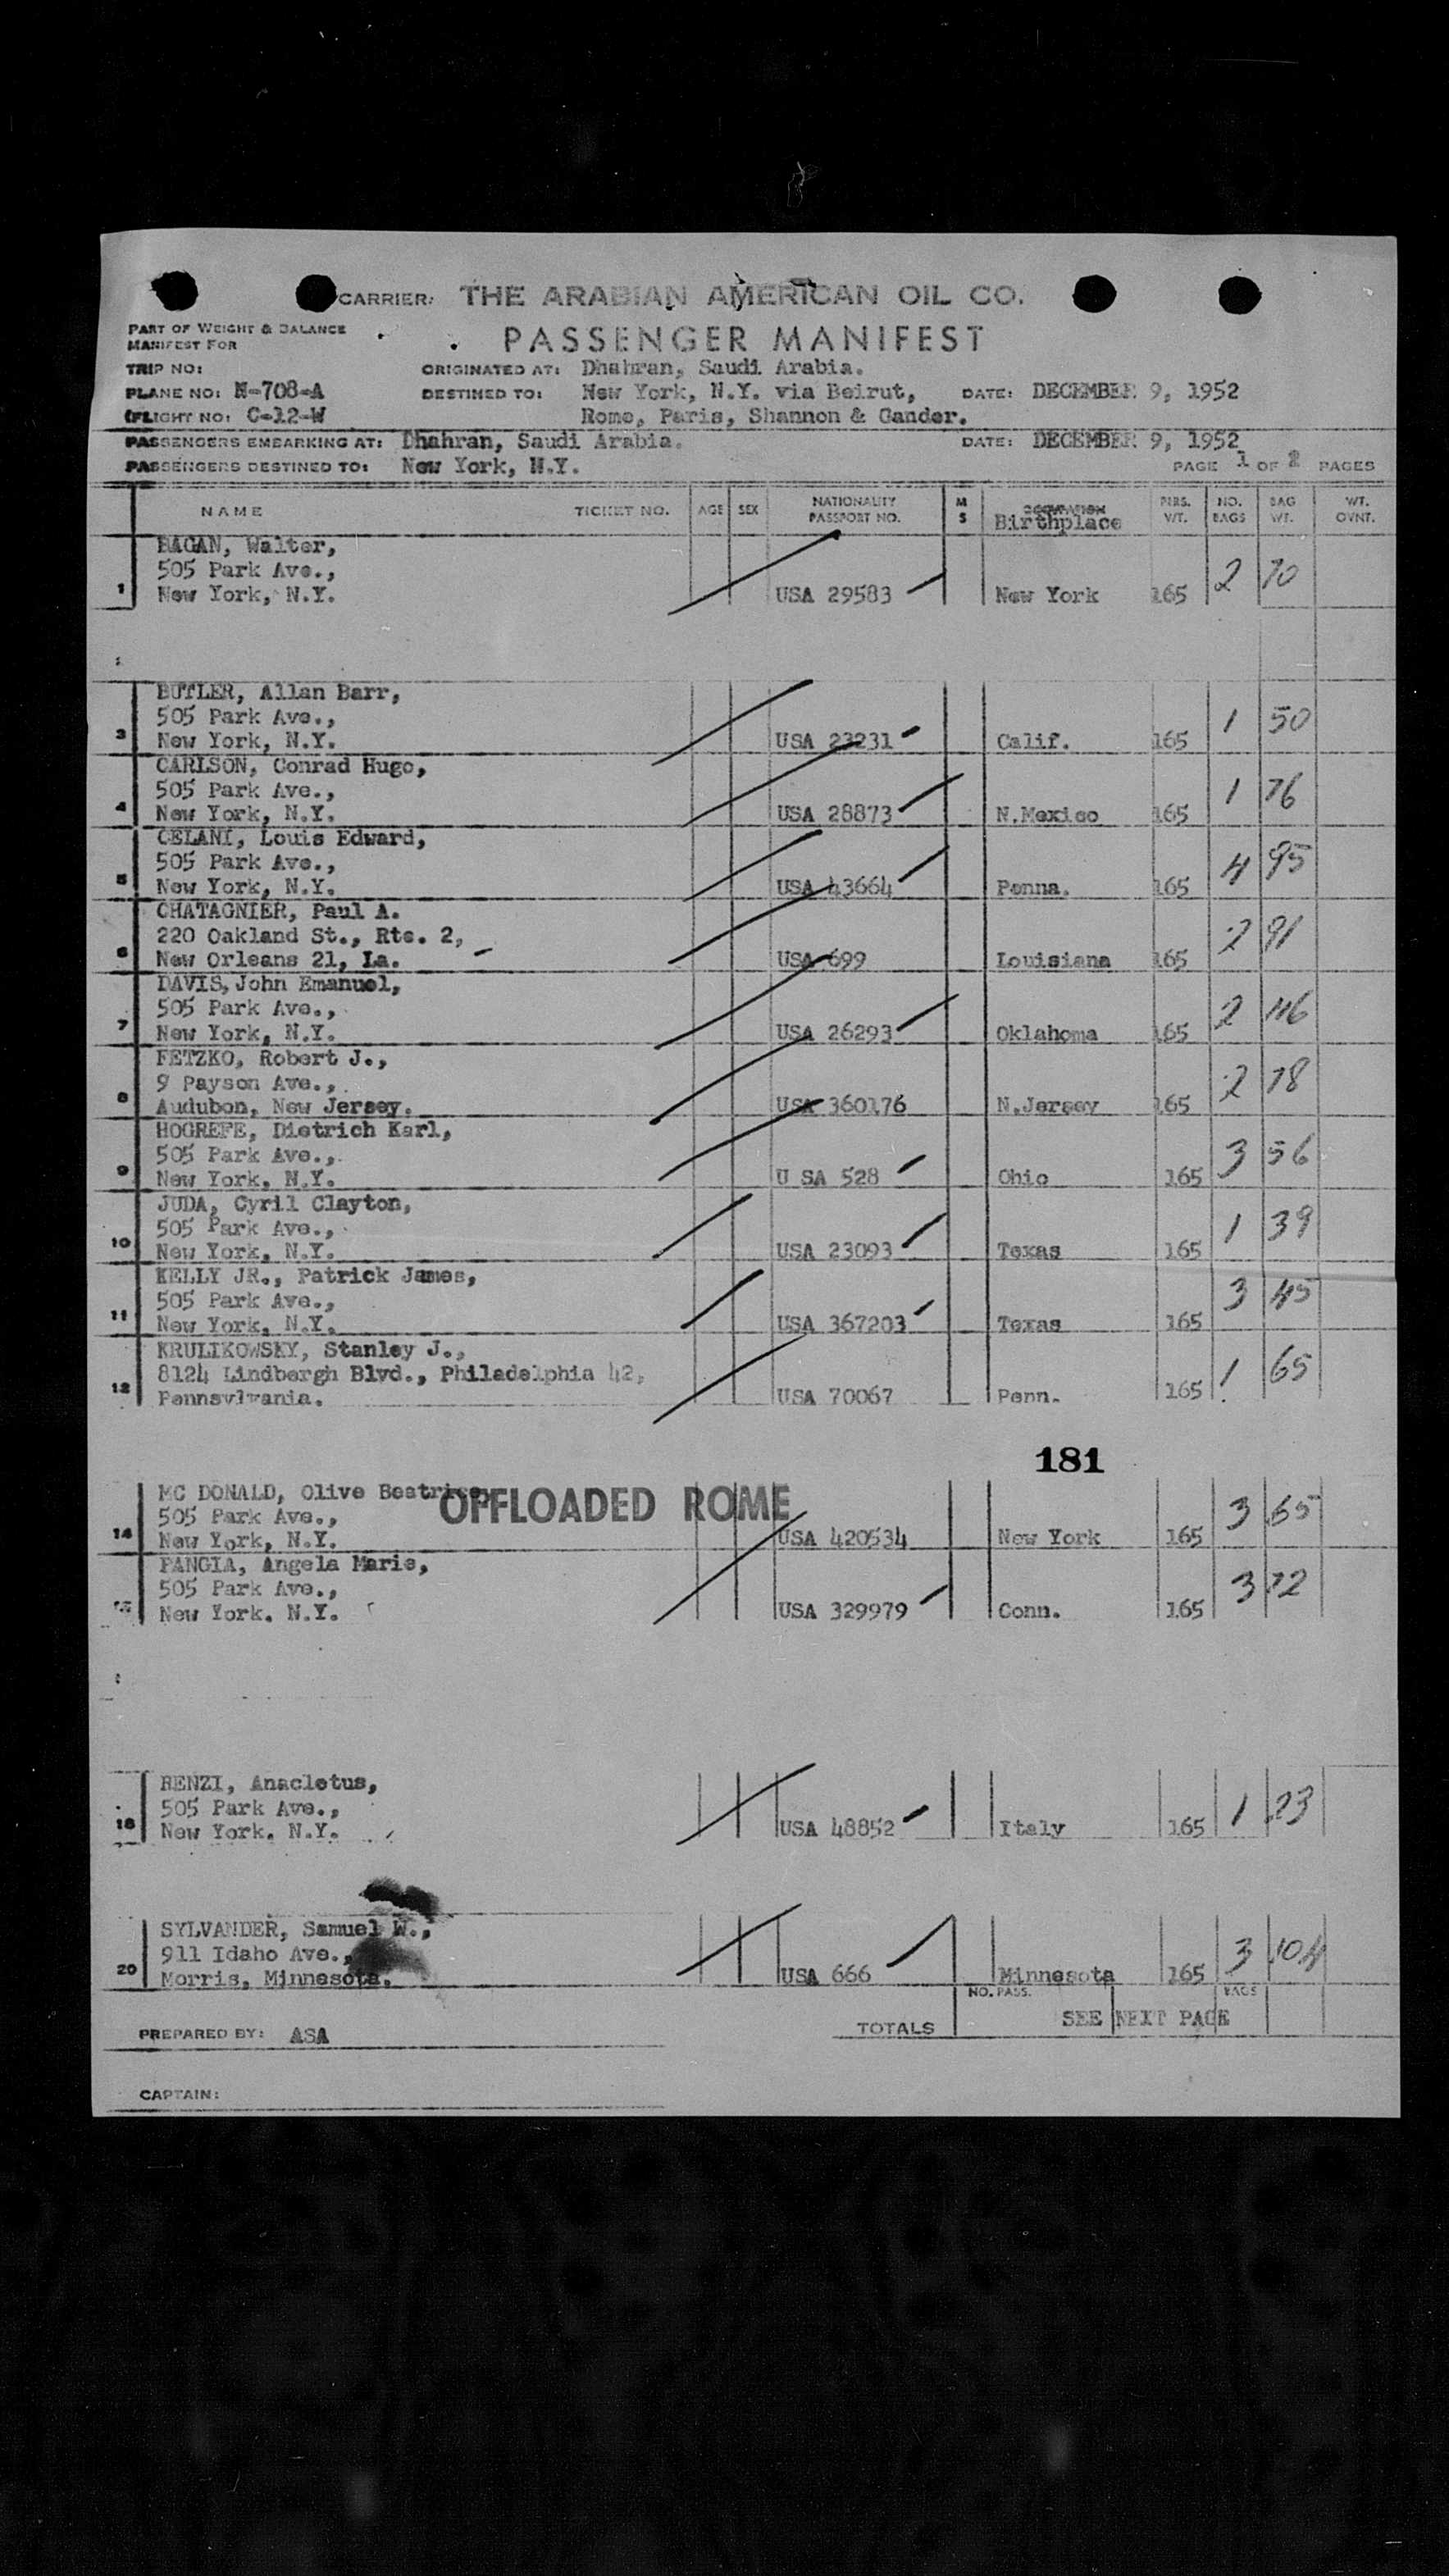 CARRIER: THE ARABIAN AMERICAN OIL CO.
PART OF WEIGHT & BALANCE
MANIFEST FOR
PASSENGER MANIFEST
TRIP NO: ORIGINATED AT: Dhahran, Saudi Arabia.
PLANE NO: N-708-A DESTINED TO: New York, N.Y. via Beirut, DATE: DECEMBER 9, 1952
FLIGHT NO: C-12-W Rome, Paris, Shannon & Gander.
PASSENGERS EMBARKING AT: Dhahran, Saudi Arabia. DATE: DECEMBER 9, 1952
PASSENGERS DESTINED TO: New York, N.Y. PAGE 1 OF 2 PAGES
NAME TICKET NO. AGE SEX NATIONALITY PASSPORT NO. M S OCCUPATION Birthplace PERS. WT. NO. BAGS BAG WT. WT. OVNT.
BAGAN, Walter,
505 Park Ave.,
1 New York, N.Y. USA 29583 New York 165 2 70
BUTLER, Allan Barr,
505 Park Ave.,
3 New York, N.Y. USA 23231 Calif. 165 1 50
CARLSON, Conrad Hugo,
505 Park Ave.,
4 New York, N.Y. USA 28873 N.Mexico 165 1 76
CELANI, Louis Edward,
505 Park Ave.,
5 New York, N.Y. USA 43664 Penna. 165 4 95
CHATAGNIER, Paul A.
220 Oakland St., Rte. 2,
6 New Orleans 21, La. USA 699 Louisiana 165 2 91
DAVIS, John Emanuel,
505 Park Ave.,
7 New York, N.Y. USA 26293 Oklahoma 165 2 116
FETZKO, Robert J.,
9 Payson Ave.,
8 Audubon, New Jersey. USA 360176 N.Jersey 165 2 78
HOGREFE, Dietrich Karl,
505 Park Ave.,
9 New York, N.Y. U SA 528 Ohio 165 3 56
JUDA, Cyril Clayton,
505 Park Ave.,
10 New York, N.Y. USA 23093 Texas 165 1 39
KELLY JR., Patrick James,
505 Park Ave.,
11 New York, N.Y. USA 367203 Texas 165 3 45
KRULIKOWSKY, Stanley J.,
8124 Lindbergh Blvd., Philadelphia 42,
12 Pennsylvania. USA 70067 Penn. 165 1 65
181
MC DONALD, Olive Beatrice,
OFFLOADED ROME
505 Park Ave.,
14 New York, N.Y. USA 420534 New York 165 3 65
PANGIA, Angela Marie,
505 Park Ave.,
15 New York. N.Y. USA 329979 Conn. 165 3 72
RENZI, Anacletus,
505 Park Ave.,
18 New York. N.Y. USA 48852 Italy 165 1 23
SYLVANDER, Samuel W.,
911 Idaho Ave.,
20 Morris, Minnesota. USA 666 Minnesota 165 3 104
NO. PASS. BAGS
PREPARED BY: ASA TOTALS SEE NEXT PAGE
CAPTAIN: